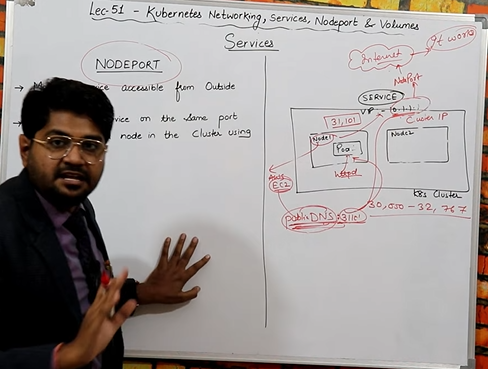 Lec-51 - Kubernetes Networking, Services, Nodeport & Volumes
Services
NODEPORT
→ accessible from Outside
→ on the Same port
node in the Cluster using
Internet
It works
NodePort
SERVICE
Cluster IP
31,101
Node1
Node2
Pod
httpd
AWS
EC2
K8s Cluster
public DNS:31101
30,000-32,767